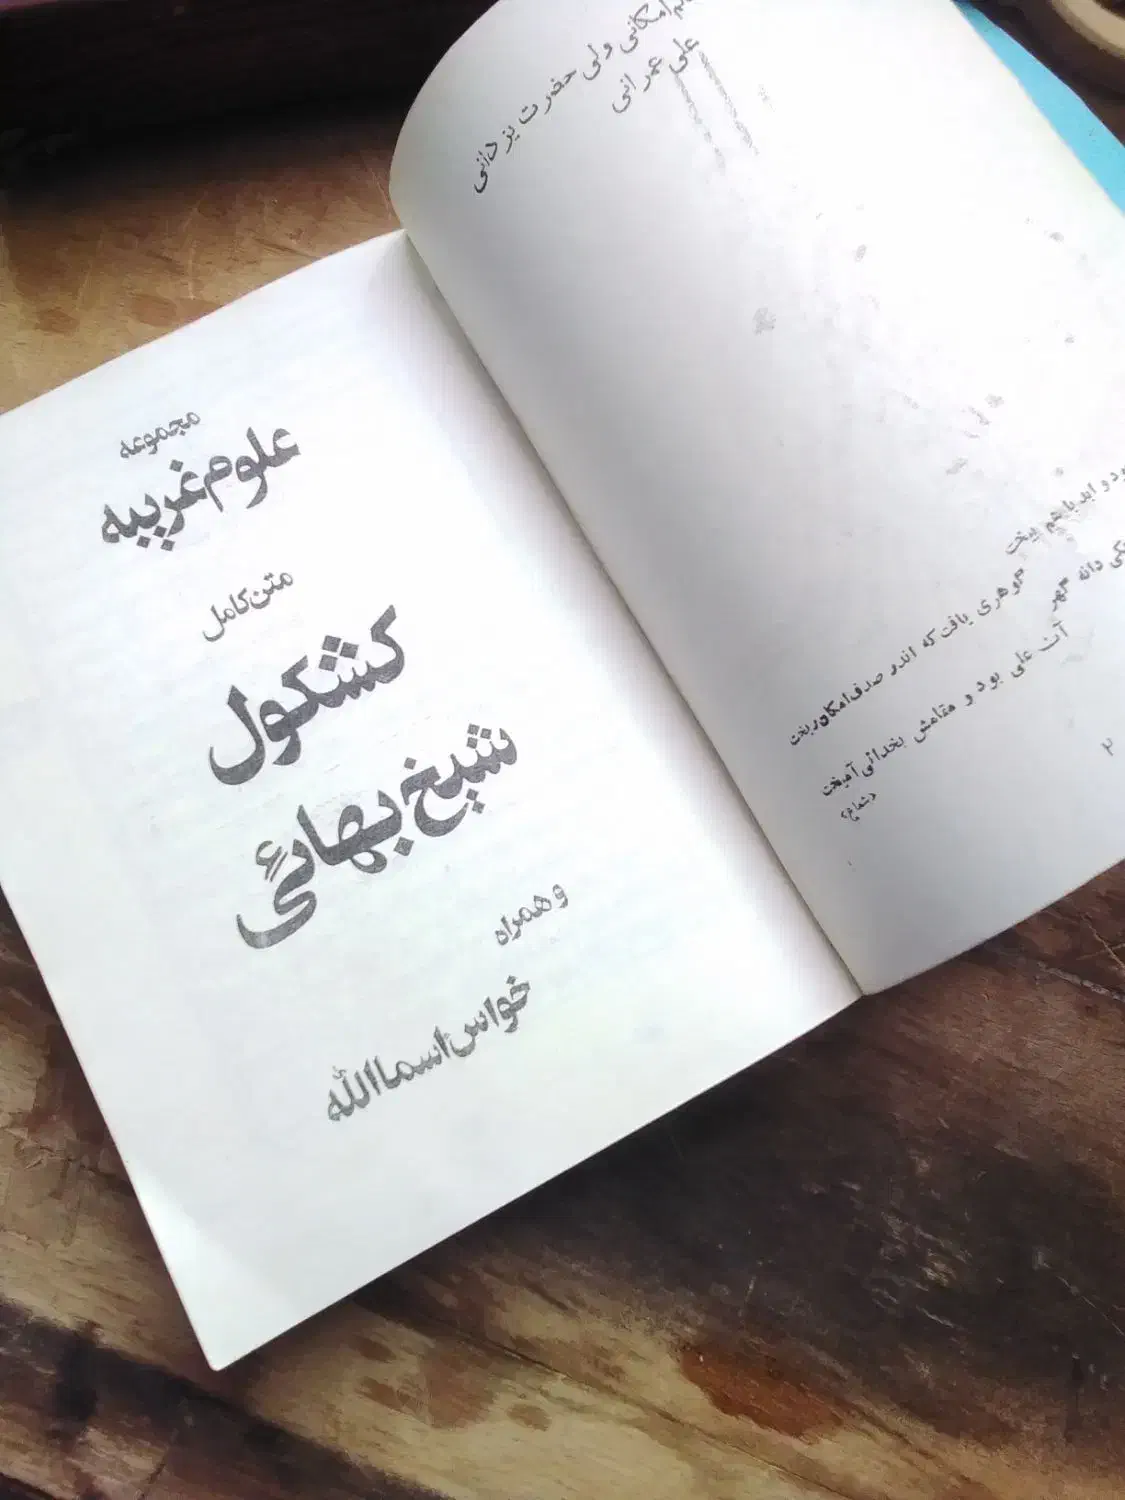 امکانی ولی حضرت یزدانی
علی عمرانی
ود و ابد با هم بیخت
گوهری یافت که اندر صدف امکان ریخت
دانه گهر
آن علی بود و مقامش بخدائی آمیخت
۲
مجموعه
علوم غریبه
متن کامل
کشکول
شیخ بهائی
و همراه
خواص اسماالله